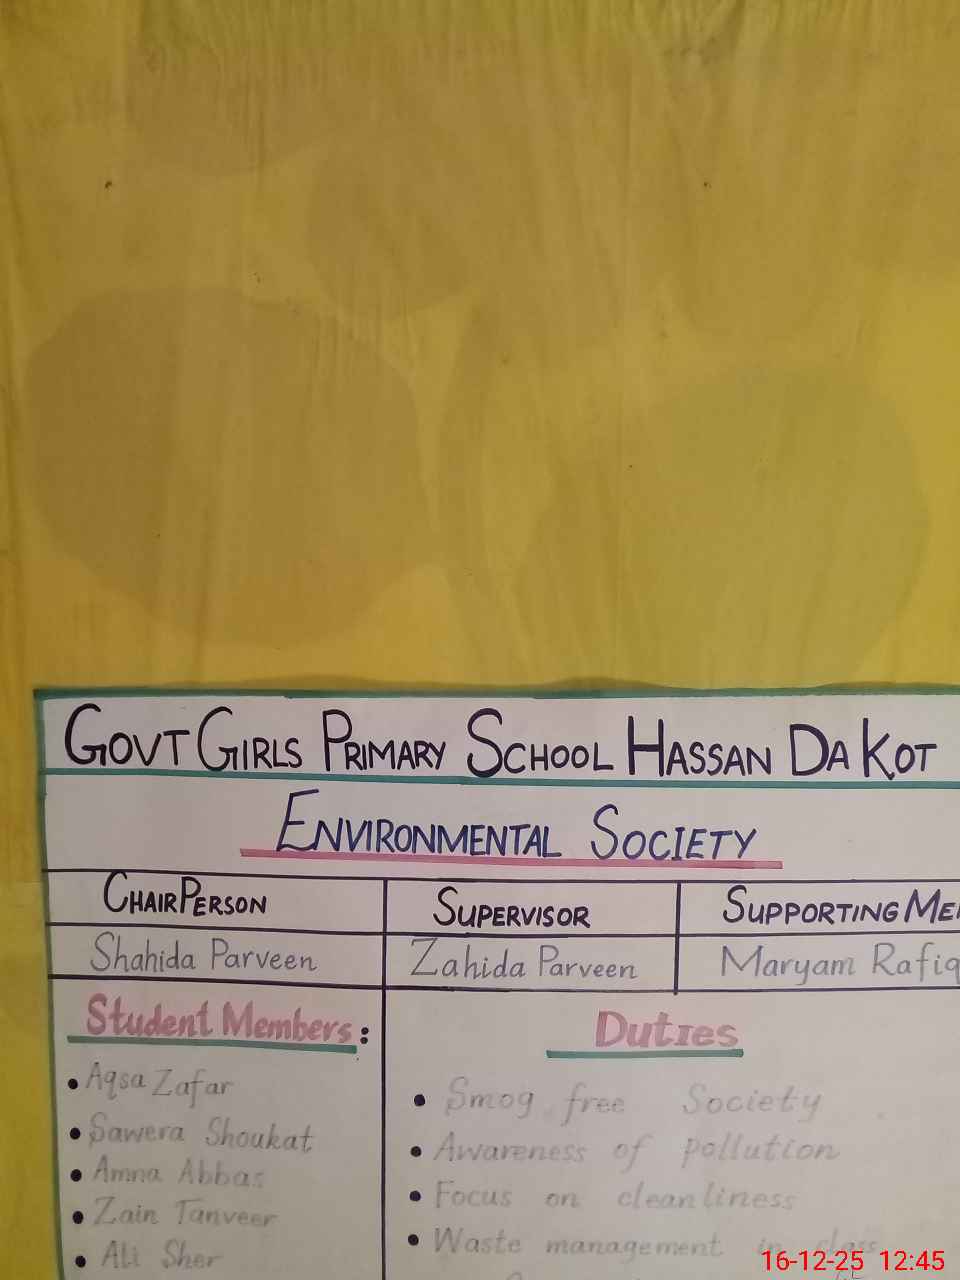 GOVT GIRLS PRIMARY SCHOOL HASSAN DA KOT
ENVIRONMENTAL SOCIETY
CHAIRPERSON SUPERVISOR SUPPORTING ME
Shahida Parveen Zahida Parveen Maryam Rafiq
Student Members:
• Aqsa Zafar
• Sawera Shoukat
• Amna Abbas
• Zain Tanveer
• Ali Sher
Duties
• Smog free Society
• Awareness of pollution
• Focus on cleanliness
• Waste management in class
16-12-25 12:45